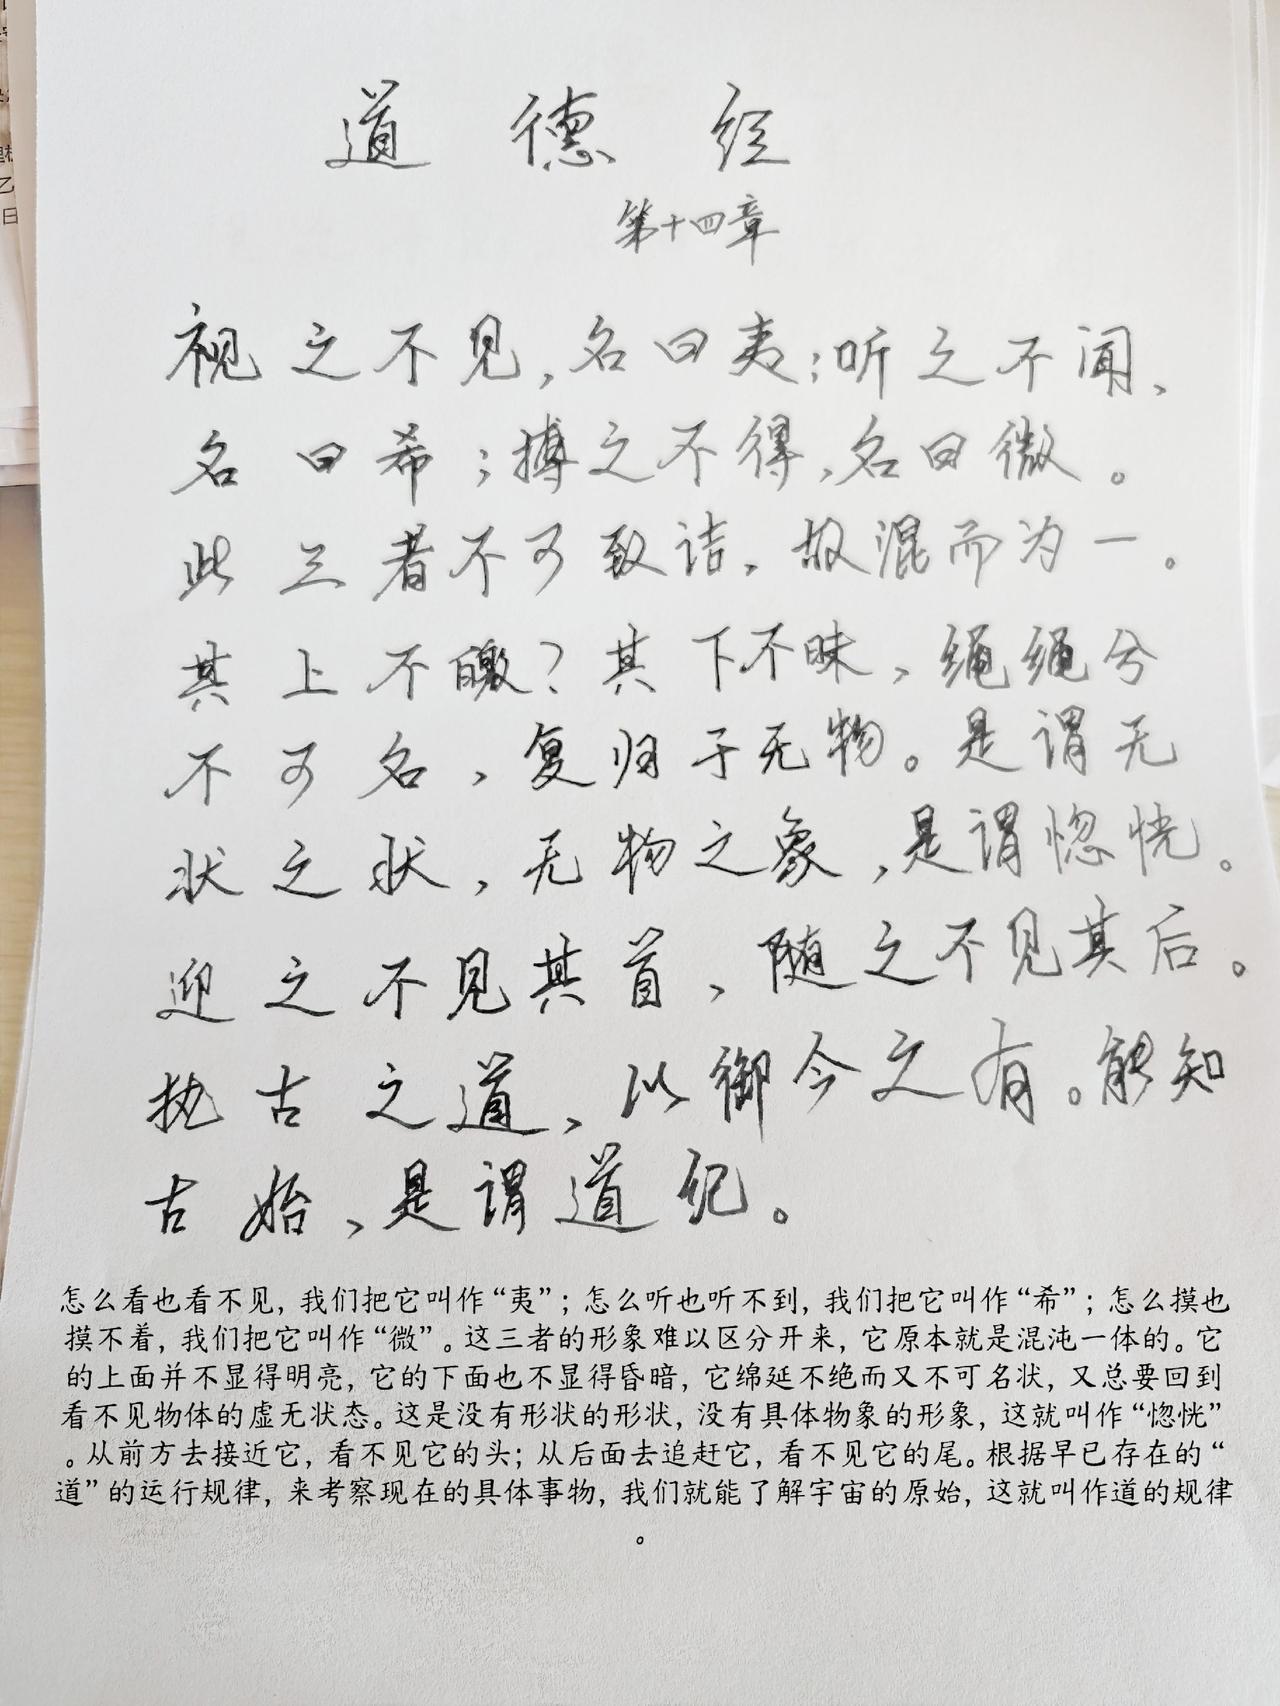 道德经
第十四章
视之不见,名曰夷;听之不闻、
名曰希;搏之不得,名曰微。
此三者不可致诘,故混而为一。
其上不皦?其下不昧,绳绳兮
不可名,复归于无物。是谓无
状之状,无物之象,是谓惚恍。
迎之不见其首,随之不见其后。
执古之道,以御今之有。能知
古始,是谓道纪。
怎么看也看不见,我们把它叫作“夷”;怎么听也听不到,我们把它叫作“希”;怎么摸也
摸不着,我们把它叫作“微”。这三者的形象难以区分开来,它原本就是混沌一体的。它
的上面并不显得明亮,它的下面也不显得昏暗,它绵延不绝而又不可名状,又总要回到
看不见物体的虚无状态。这是没有形状的形状,没有具体物象的形象,这就叫作“惚恍”
。从前方去接近它,看不见它的头;从后面去追赶它,看不见它的尾。根据早已存在的“
道”的运行规律,来考察现在的具体事物,我们就能了解宇宙的原始,这就叫作道的规律
。